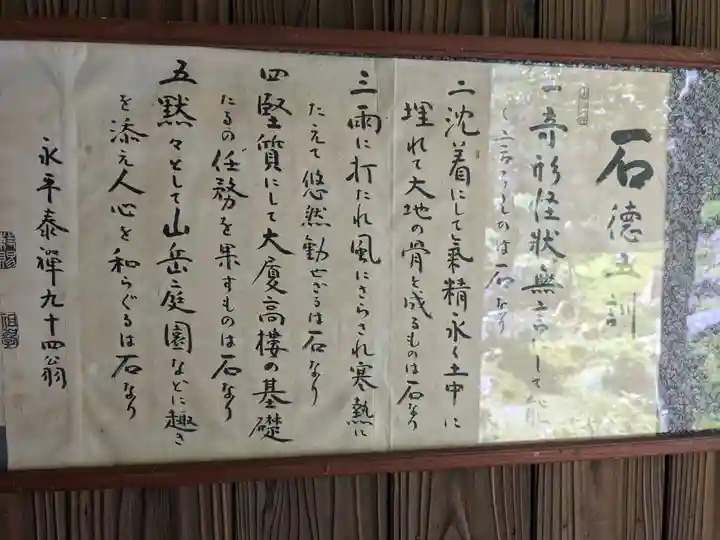 石德五訓
一奇形怪状無言にして能
く言うものは石なり
二沈着にして氣精永く土中に
埋れて大地の骨と成るものは石なり
三雨に打たれ風にさらされ寒熱に
たえて悠然動ぜざるは石なり
四堅質にして大厦高楼の基礎
たるの任務を果すものは石なり
五黙々として山岳庭園などに趣き
を添え人心を和らぐるは石なり
永平泰禪九十四翁